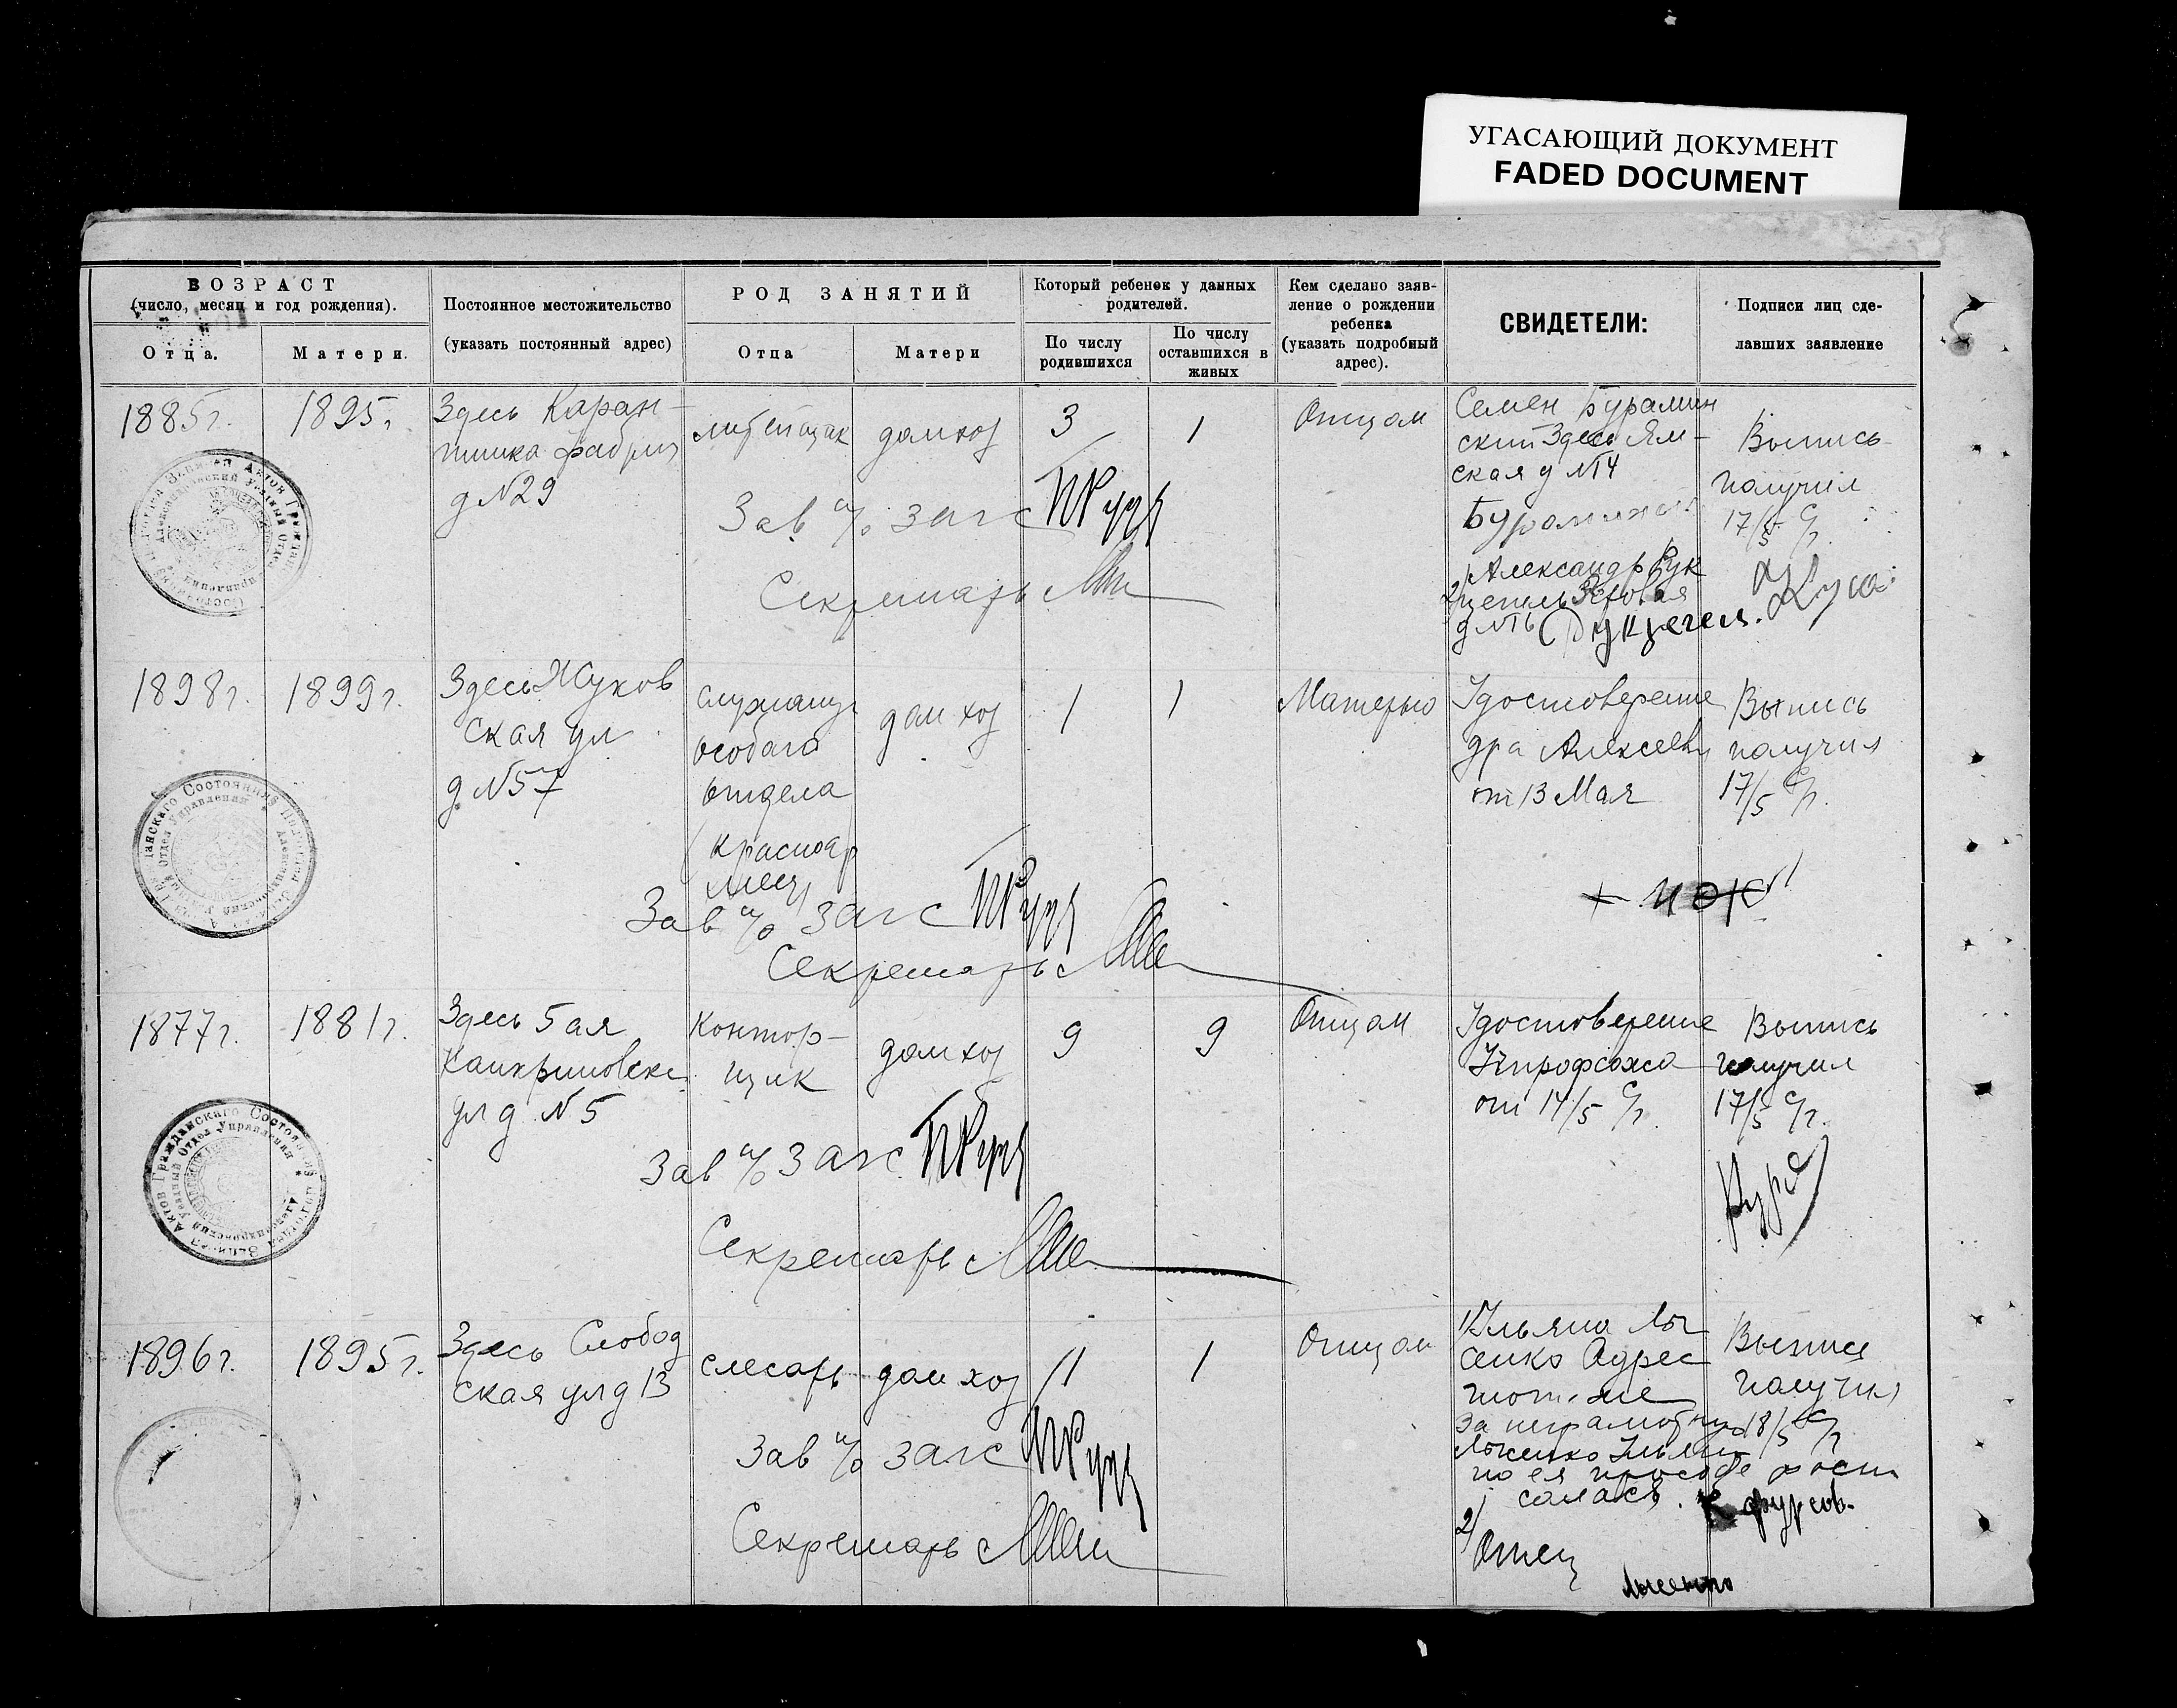 УГАСАЮЩИЙ ДОКУМЕНТ
FADED DOCUMENT
ВОЗРАСТ
(число, месяц и год рождения).
Отца.
Матери.
Постоянное местожительство
(указать постоянный адрес)
РОД ЗАНЯТИЙ
Отца
Матери
Который ребенок у данных
родителей.
По числу
родившихся
По числу
оставшихся в
живых
Кем сделано заяв-
ление о рождении
ребенка
(указать подробный
адрес).
СВИДЕТЕЛИ:
Подписи лиц сде-
лавших заявление
1885г.
1895г
Здесь Каран-
тинка фабриц
д №29
литейщик
домхоз
3
1
Отцом
Семен Бурамин
ский Здесь Ям-
ская д №14
Александр
Выпись
получил
17/5 с/г.
Зав п/о загс
Секретарь
1898г.
1899г.
Здесь Жуков
ская ул
д №57
служащ
особаго
отдела
красноар
меец
дом хоз
1
1
Матерью
Удостоверение
дра Алексеев
от 13 Мая
Выпись
получил
17/5 с/г.
Зав п/о загс
Секретарь
1877г.
1881г.
Здесь 5 ая
Канкриновск
ул д №5
Контор-
щик
дом хоз
9
9
Отцом
Удостоверение
Учпрофсожа
от 14/5 с/г.
Выпись
получил
17/5 с/г.
Зав п/о загс
Секретарь
1896г.
1895г.
Здесь Слобод
ская ул д 13
слесарь
дом хоз
1
1
Отцом
1/Ульяна
Адрес
тот-же
за неграмотную
по ея просьбе
2/
Отец
Выпись
получил
18/5 с/г
Зав п/о загс
Секретарь